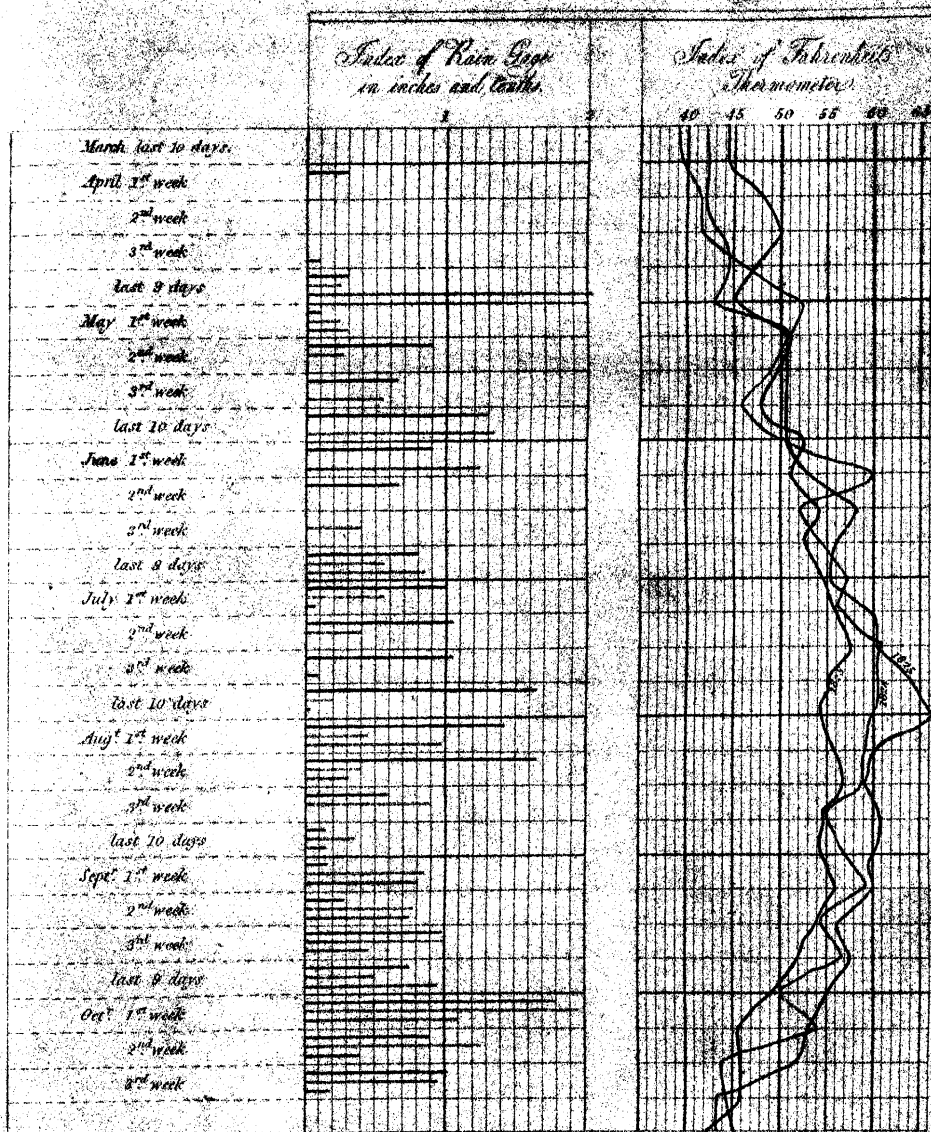 Index of Rain Gage
in inches and tenths.
Index of Fahrenheits
Thermometer
1 2
40 45 50 55 60 65
March last 10 days.
April 1st week
2nd week
3rd week
last 9 days
May 1st week
2nd week
3rd week
last 10 days
June 1st week
2nd week
3rd week
last 8 days
July 1st week
2nd week
3rd week
last 10 days
Augt 1st week
2nd week
3rd week
last 10 days
Septr 1st week
2nd week
3rd week
last 9 days
Octr 1st week
2nd week
3rd week
1825
1823
1824